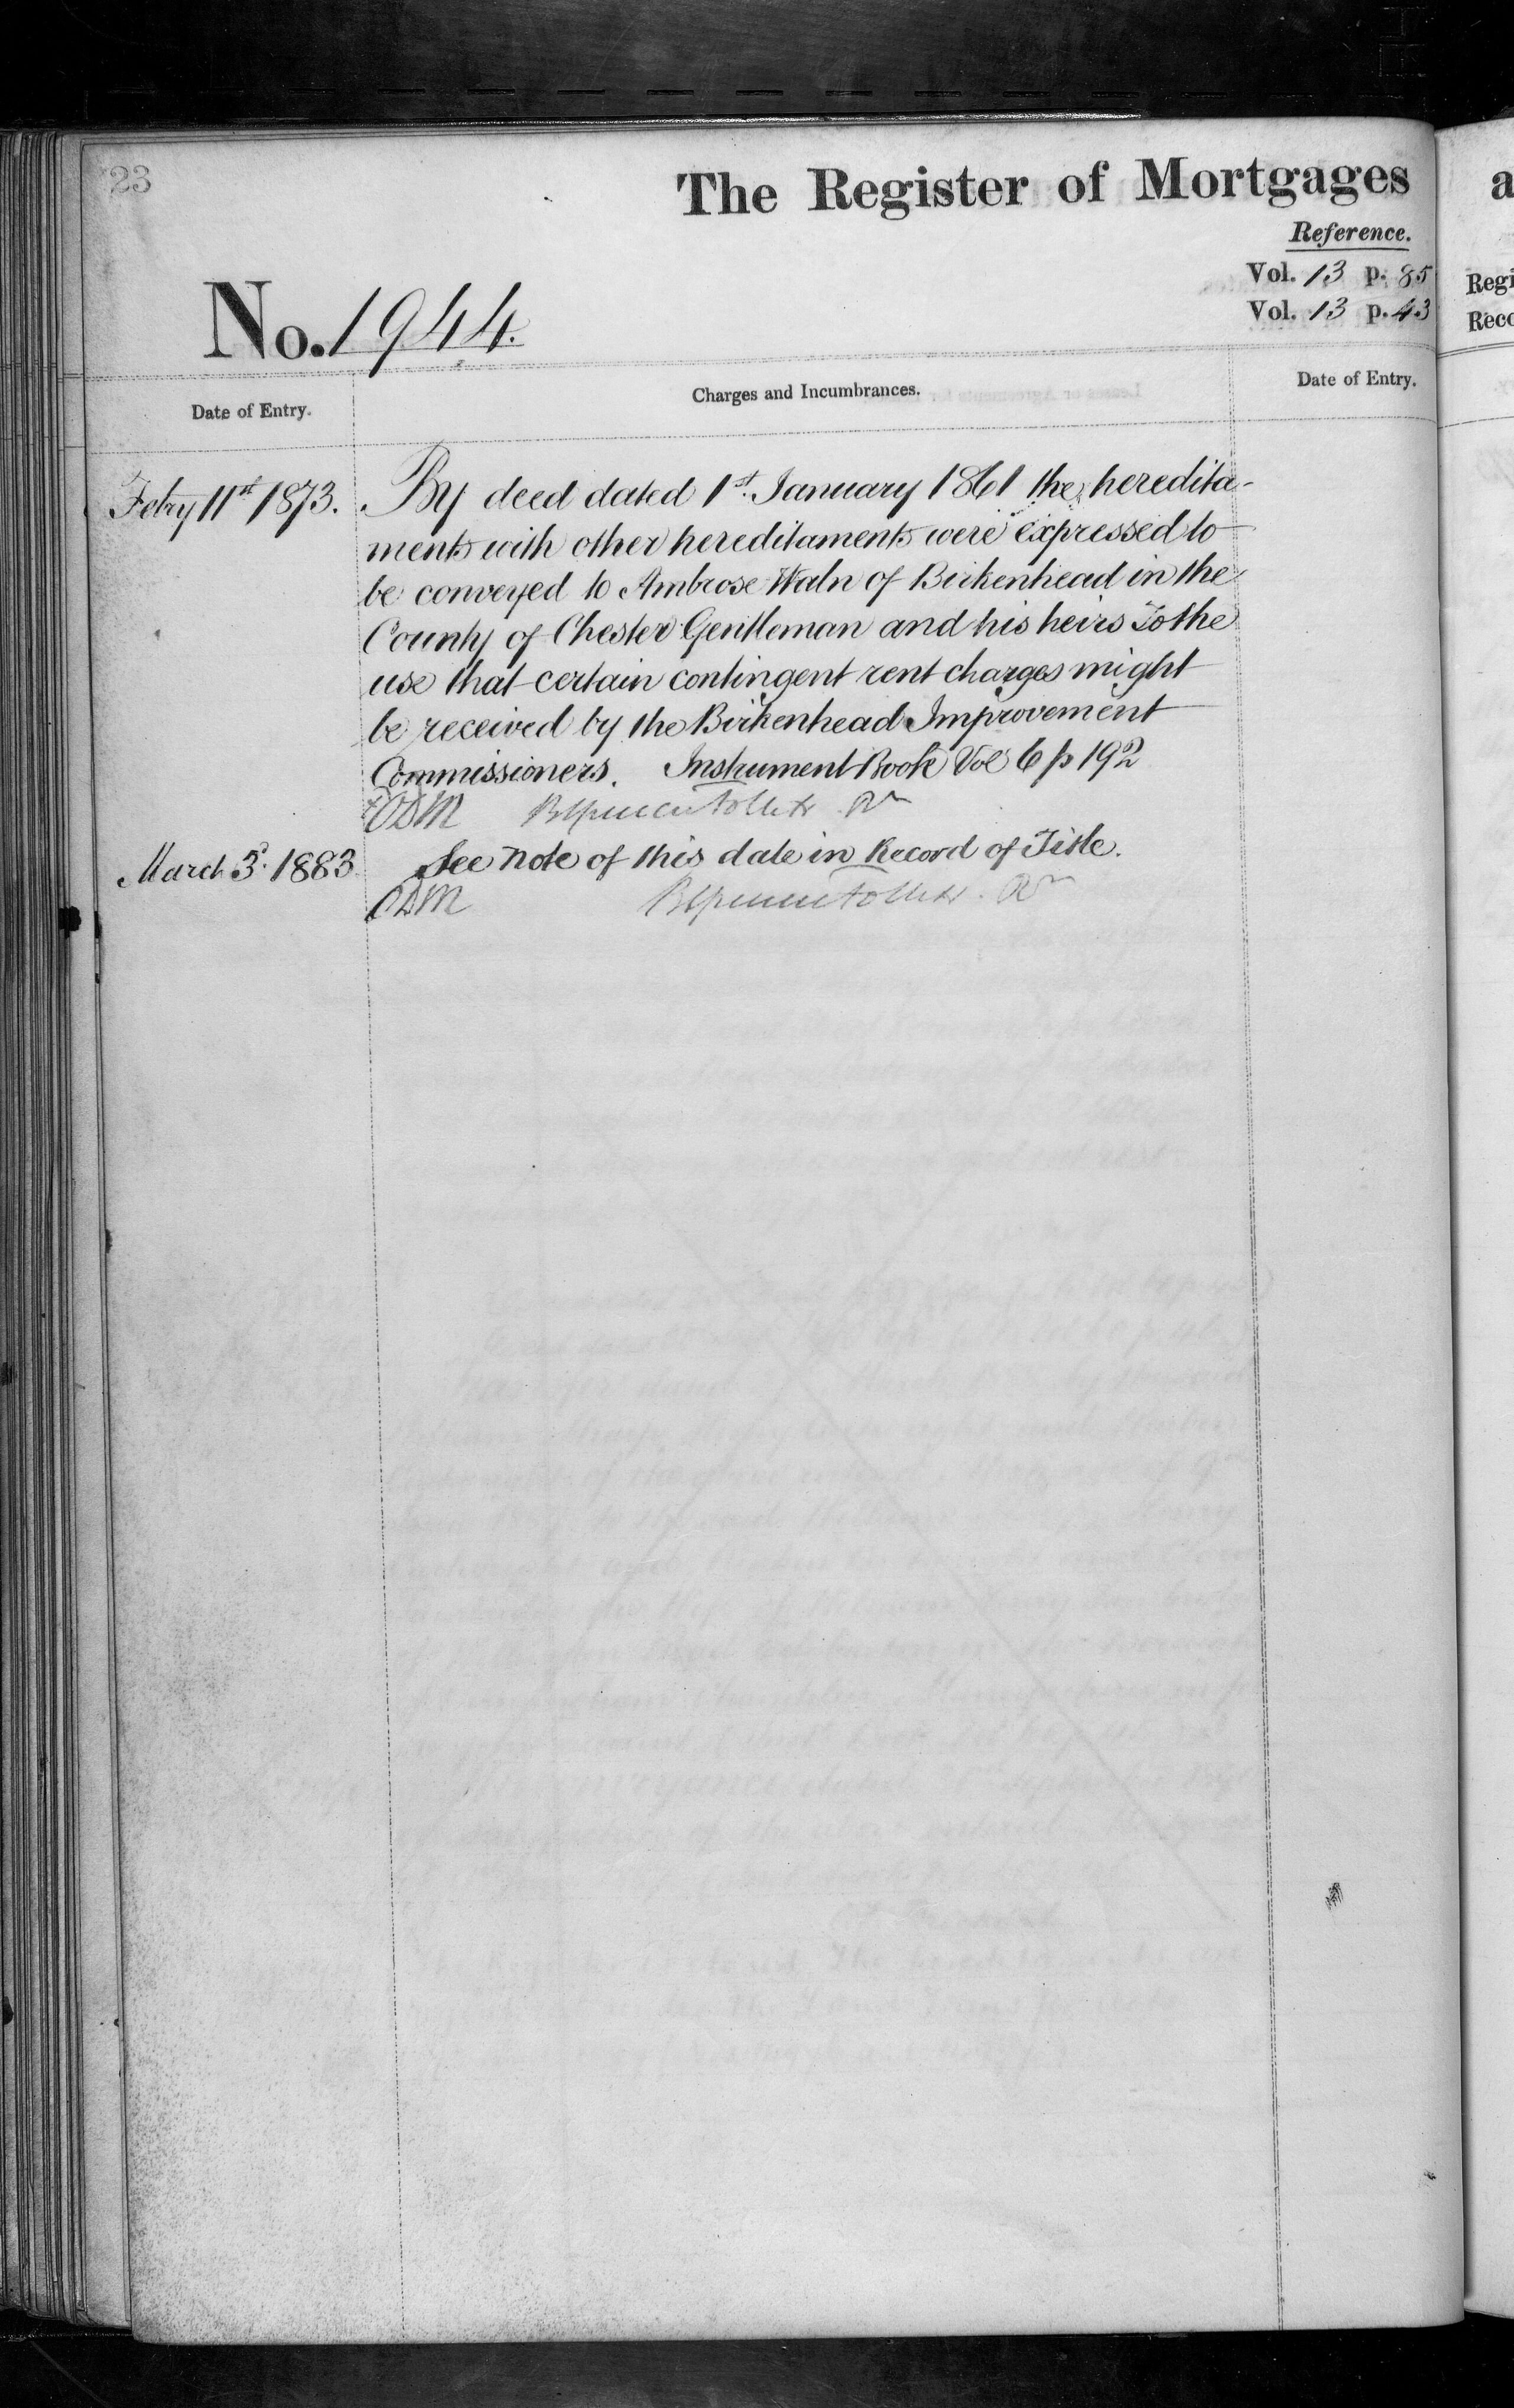 23
The Register of Mortgages
Reference.
Vol. 13 p. 85
Vol. 13 p. 43
No. 1944.
Date of Entry.
Charges and Incumbrances.
Date of Entry.
Febry 11st 1873.
By deed dated 1st. January 1861 the heredita-
ments with other hereditaments were expressed to
be conveyed to Ambrose Waln of Birkenhead in the
County of Chester Gentleman and his heirs To the
use that certain contingent rent charges might
be received by the Birkenhead Improvement
Commissioners. Instrument Book Vol 6 p 192
March 3. 1883
See note of this date in Record of Title.
a
Regi
Reco